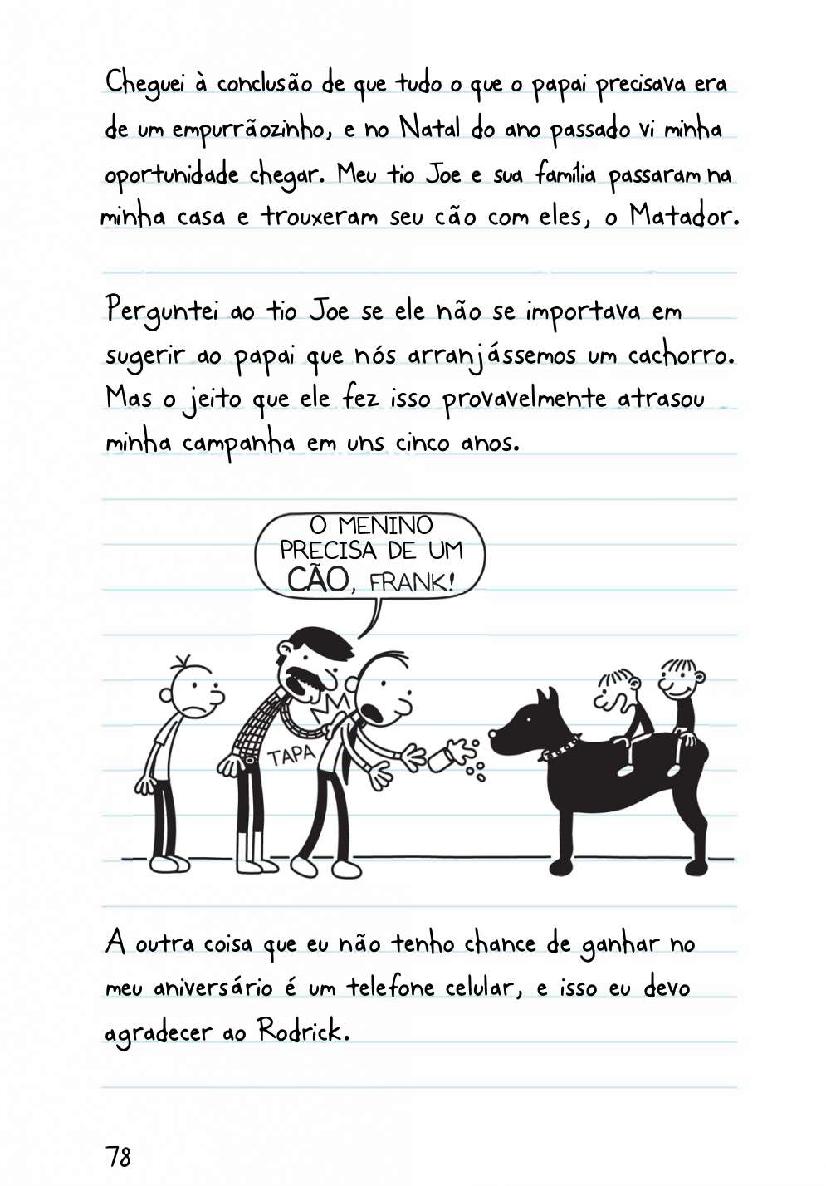 Cheguei à conclusão de que tudo o que o papai precisava era
de um empurrãozinho, e no Natal do ano passado vi minha
oportunidade chegar. Meu tio Joe e sua família passaram na
minha casa e trouxeram seu cão com eles, o Matador.
Perguntei ao tio Joe se ele não se importava em
sugerir ao papai que nós arranjássemos um cachorro.
Mas o jeito que ele fez isso provavelmente atrasou
minha campanha em uns cinco anos.
O MENINO
PRECISA DE UM
CÃO, FRANK!
TAPA
A outra coisa que eu não tenho chance de ganhar no
meu aniversário é um telefone celular, e isso eu devo
agradecer ao Rodrick.
78